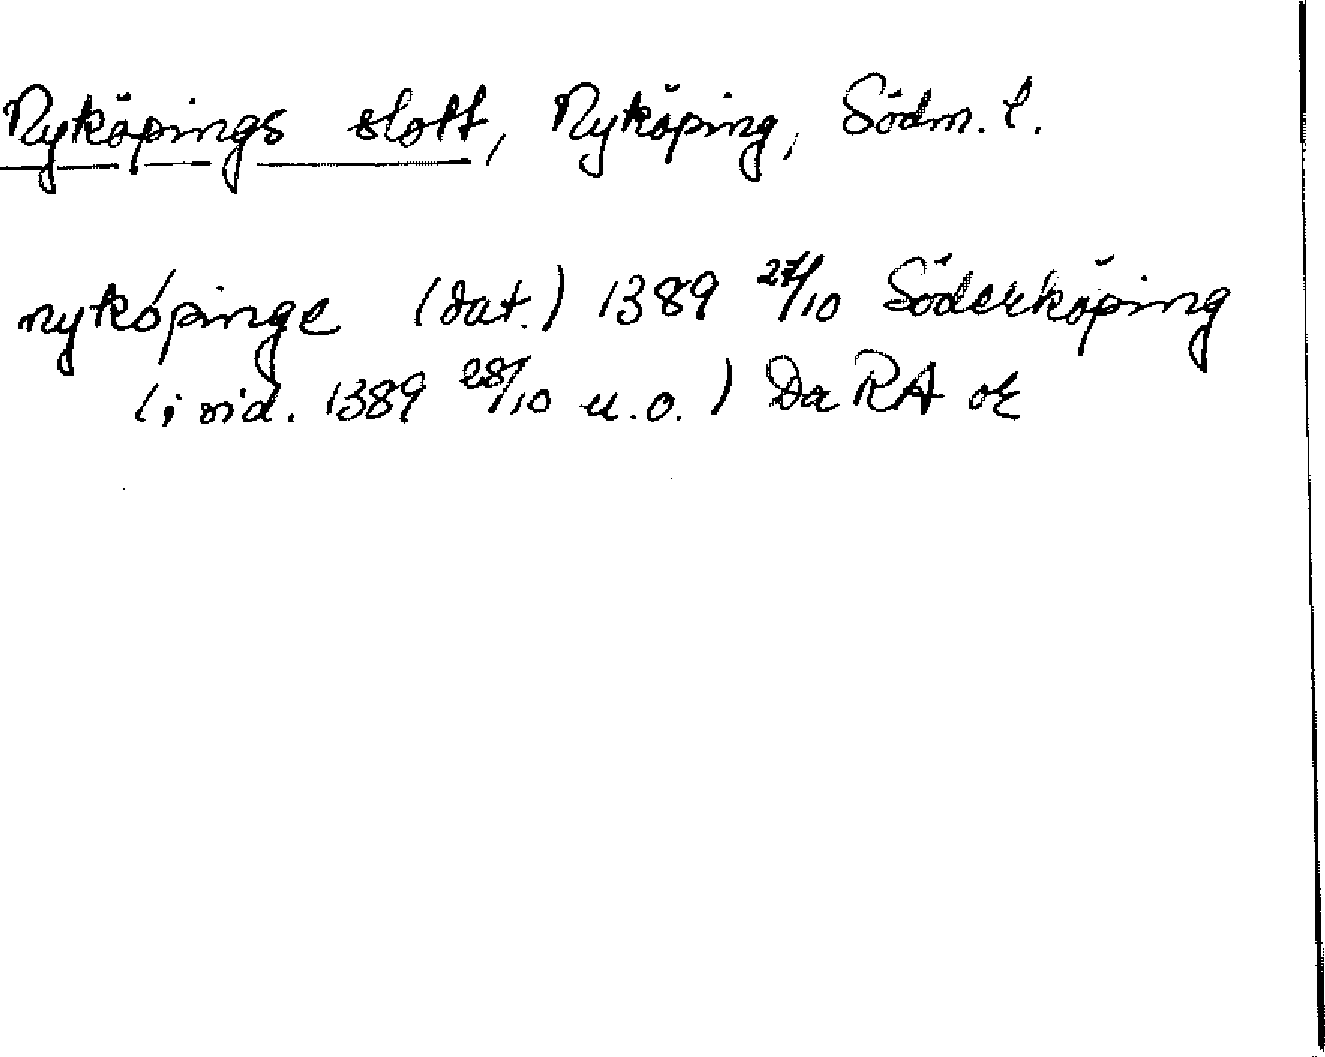 Nyköpings slott, Nyköping, Södm. l.
nykøpinge (dat.) 1389 27/10 Söderköping
(i vid. 1389 28/10 u.o.) Da RA or